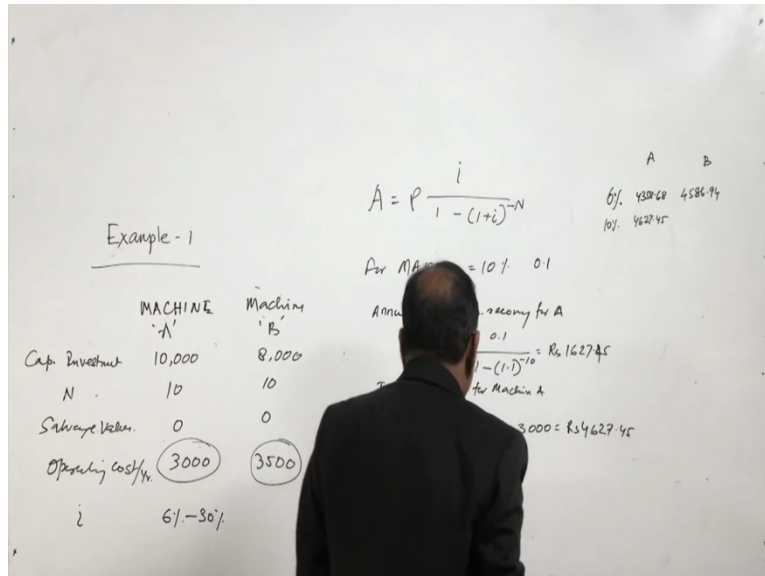 Example - 1
MACHINE 'A' Machine 'B'
Cap. Investment 10,000 8,000
N . 10 10
Salvage Value. 0 0
Operating cost/yr. 3000 3500
i 6% - 30%
A = P i / 1 - (1+i)^-N
For MA = 10% 0.1
recovery for A
0.1 / 1 - (1.1)^-10 = Rs 1627.45
for Machine A
3000 = Rs 4627.45
A B
6% 4358.68 4586.94
10% 4627.45